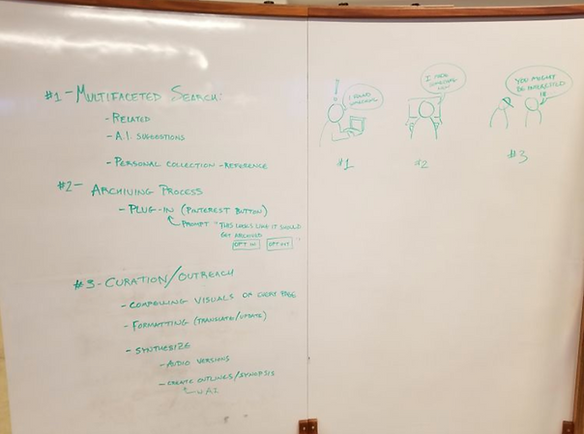 #1 - MULTIFACETED SEARCH:
- RELATED
- A.I. SUGGESTIONS
- PERSONAL COLLECTION - REFERENCE
#2 - ARCHIVING PROCESS
- PLUG-IN (PINTEREST BUTTON)
PROMPT "THIS LOOKS LIKE IT SHOULD
BE ARCHIVED
OPT IN OPT OUT "
#3 - CURATION/OUTREACH
- COMPELLING VISUALS ON EVERY PAGE
- FORMATTING (TRANSLATE/UPDATE)
- SYNTHESIZE
- AUDIO VERSIONS
- CREATE OUTLINES/SYNOPSIS
W/ A.I.
!
I FOUND
SOMETHING
#1
I HAVE
SOMETHING
NEW
#2
YOU MIGHT
BE INTERESTED
IN
#3